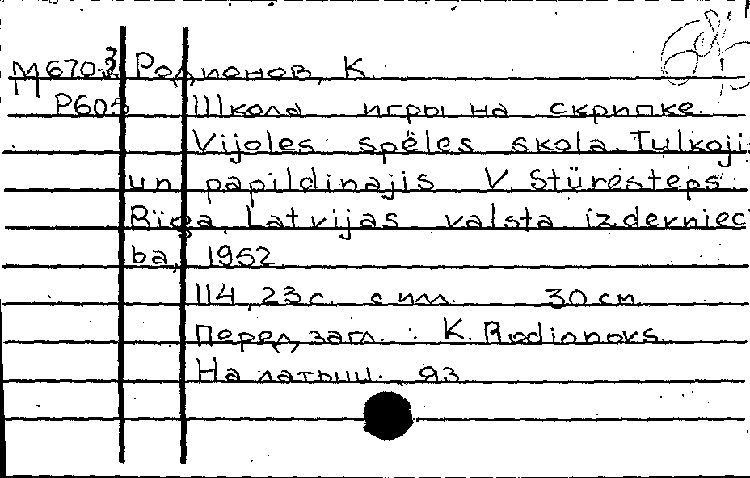 М670.3 Родионов, К.
Р603 Школа игры на скрипке.
Vijoles spēles skola. Tulkoji
un papildinajis V. Stūresteps.
Rīga, Latvijas valsta izderniec
ba, 1952.
114, 23 с. с илл. 30 см.
Перед загл.: K. Rodionovs.
На латыш. яз.